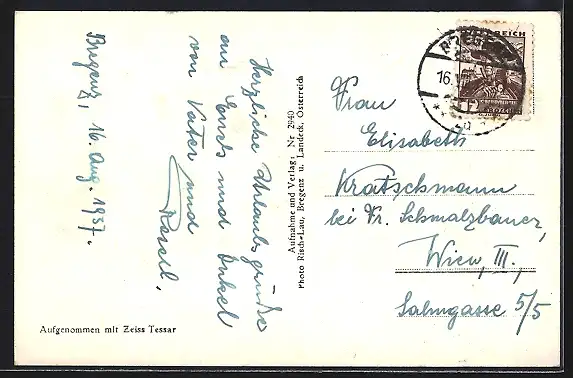 Bregenz, 16. Aug. 1937.
Herzliche Urlaubsgrüße
an Euch und Onkel
von Vater und
Reserl.
Aufgenommen mit Zeiss Tessar
Aufnahme und Verlag: Nr 2940
Photo Risch-Lau, Bregenz u. Landeck, Österreich
Frau
Elisabeth
Kratschmann
bei Fr. Schmalzbauer,
Wien, III.
Salmgasse 5/5
16.